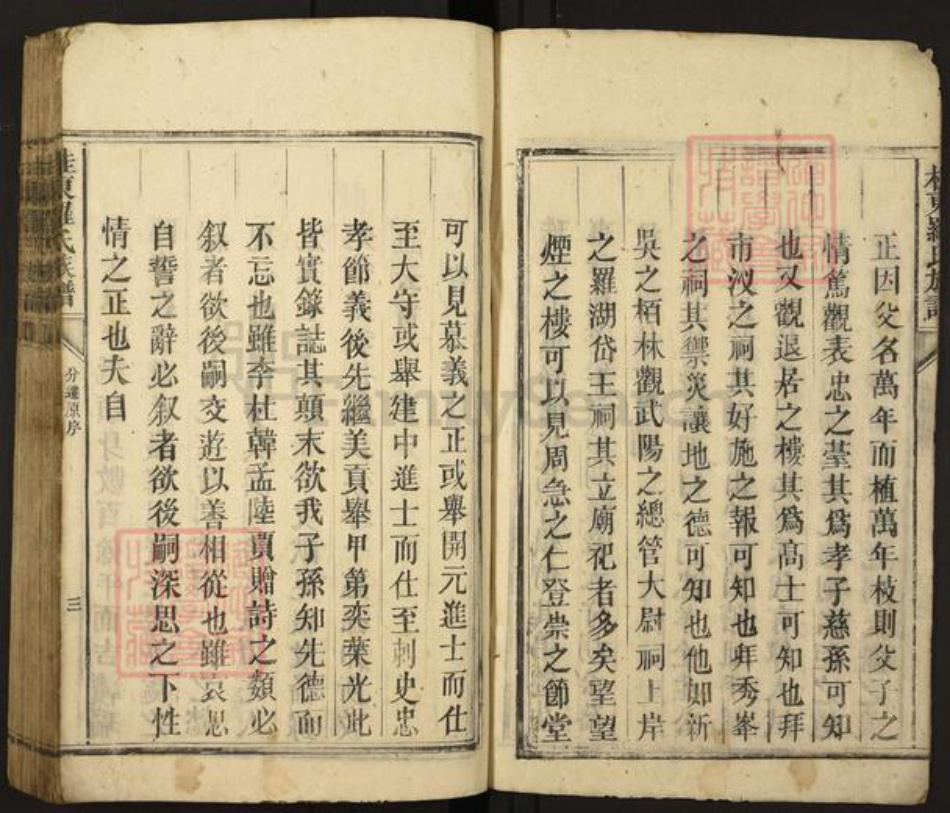 正因父名萬年而植萬年枝則父子之
情篤觀表忠之臺其爲孝子慈孫可知
也又觀退居之樓其爲高士可知也拜
市汊之祠其好施之報可知也拜秀峯
之祠其禦災讓地之德可知也他如新
吳之栢林觀武陽之總管大尉祠上岸
之羅湖岱王祠其立廟祀者多矣望望
煙之樓可以見周急之仁登崇之節堂
可以見慕義之正或舉開元進士而仕
至大守或舉建中進士而仕至刺史忠
孝節義後先繼美頁舉甲第奕葉光此
皆實錄誌其顛末欲我子孫知先德而
不忘也雖李杜韓孟陸賈贈詩之類必
叙者欲後嗣交遊以善相從也雖哀思
自誓之辭必叙者欲後嗣深思之下性
情之正也夫自
桂東羅氏族譜
分遷原序
三